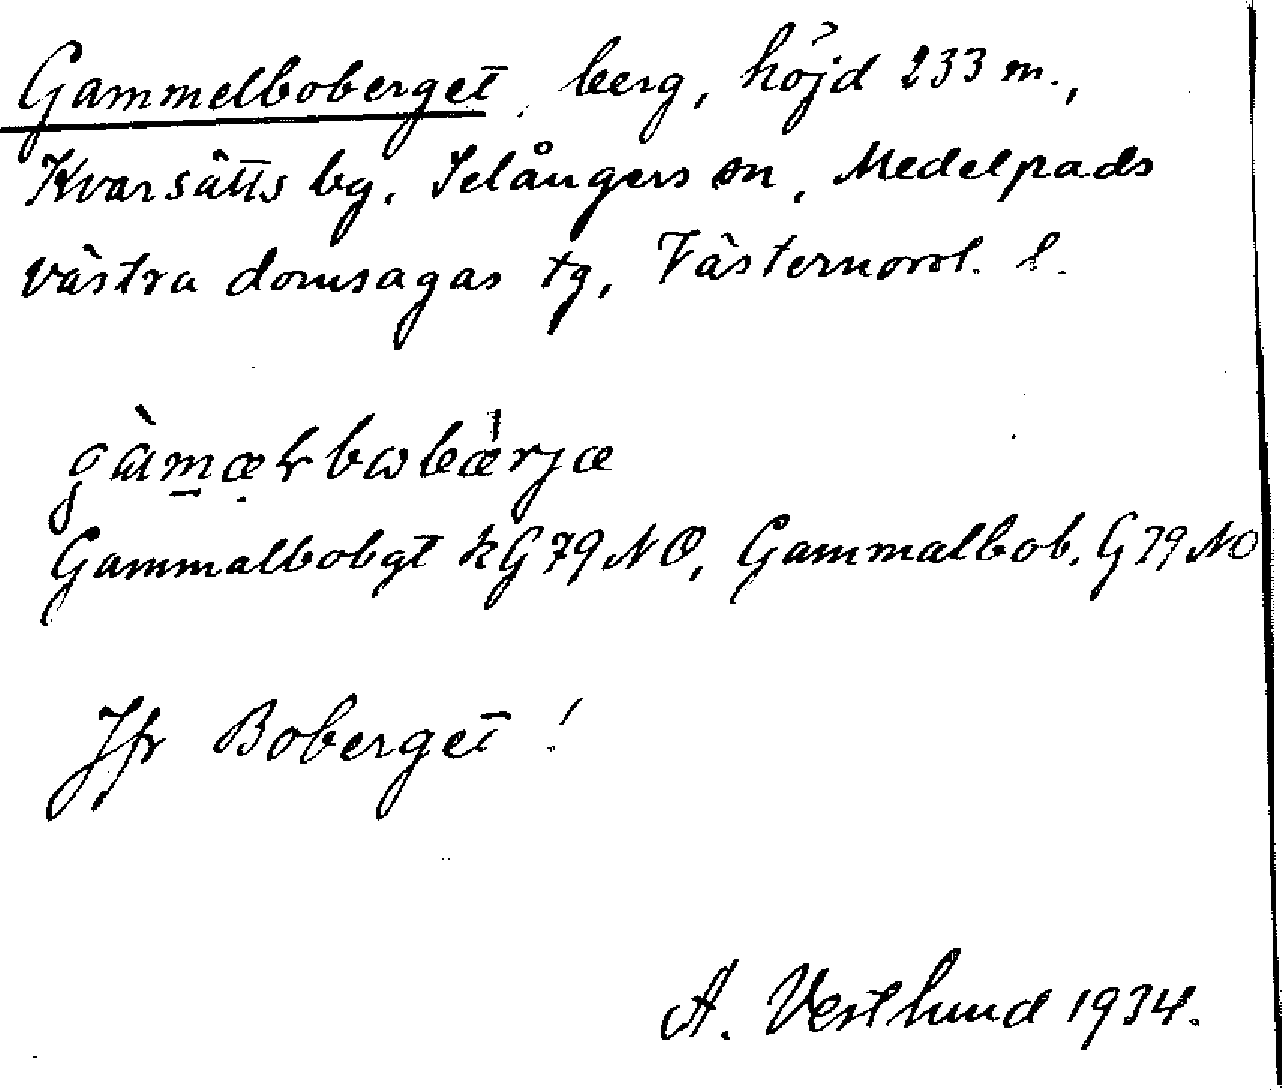 Gammelboberget, berg, höjd 233 m.,
Kvarsätts by, Selångers sn, Medelpads
västra domsagas tg, Västernorrl. l.
gàmæɽbωbæ̀rjæ
Gammalbobgt kG79NO, Gammalbob. G79NO
Jfr Boberget!
A. Vestlund 1934.